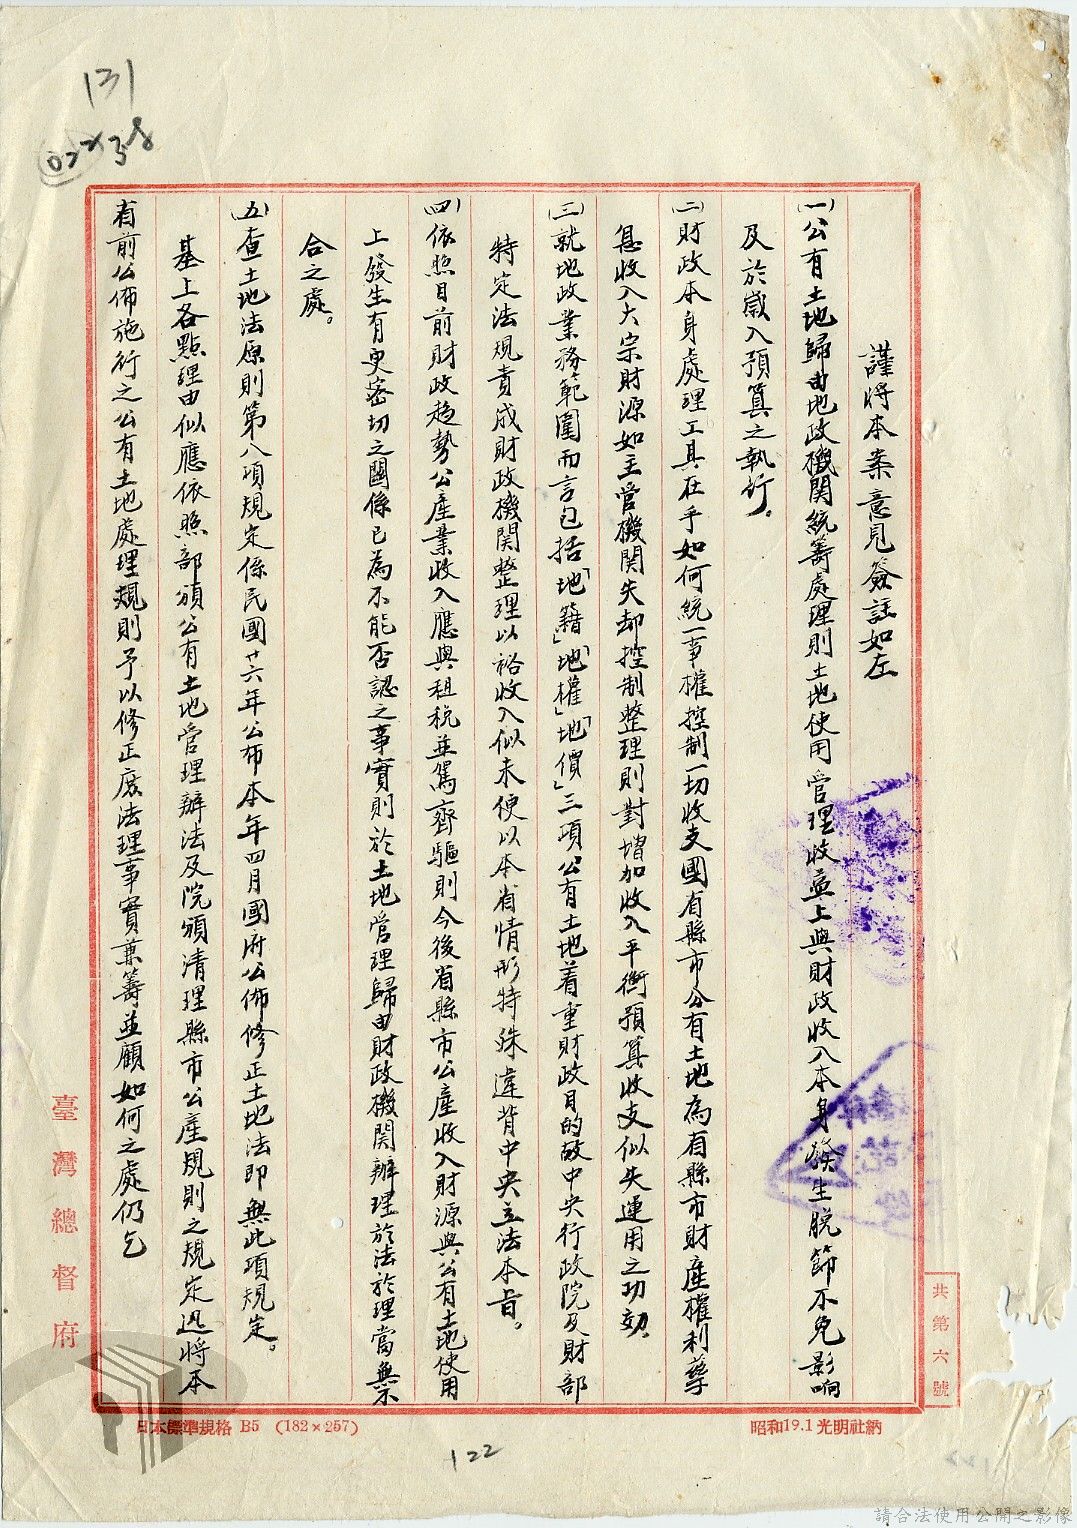 131
謹將本案意見簽註如左
(一)公有土地歸由地政機関統籌處理則土地使用管理收益上與財政收入本身發生脱節不免影响
及於歲入預算之執行。
(二)財政本身處理工具在乎如何統一事權控制一切收支國省縣市公有土地為省縣市財產權利孳
息收入大宗財源如主管機関失却控制整理則對增加收入平衡預算收支似失運用之功効。
(三)就地政業務範圍而言包括「地籍」「地權」「地價」三項公有土地着重財政目的故中央行政院及財部
特定法規責成財政機関整理以裕收入似未便以本省情形特殊違背中央立法本旨。
(四)依照目前財政趋勢公產業收入應與租税並駕齊驅則今後省縣市公產收入財源與公有土地使用
上發生有更密切之關係已為不能否認之事實則於土地管理歸由財政機関辦理於法於理當無不
合之處。
(五)查土地法原則第八項規定係民國廿六年公布本年四月國府公佈修正土地法即無此項規定。
基上各點理由似應依照部頒公有土地管理辦法及院頒清理縣市公產規則之規定迅將本
省前公佈施行之公有土地處理規則予以修正庶法理事實兼籌並顧如何之處仍乞
臺灣總督府
共第六號
日本標準規格 B5 (182×257)
昭和19.1光明社納
122
請合法使用公開之影像